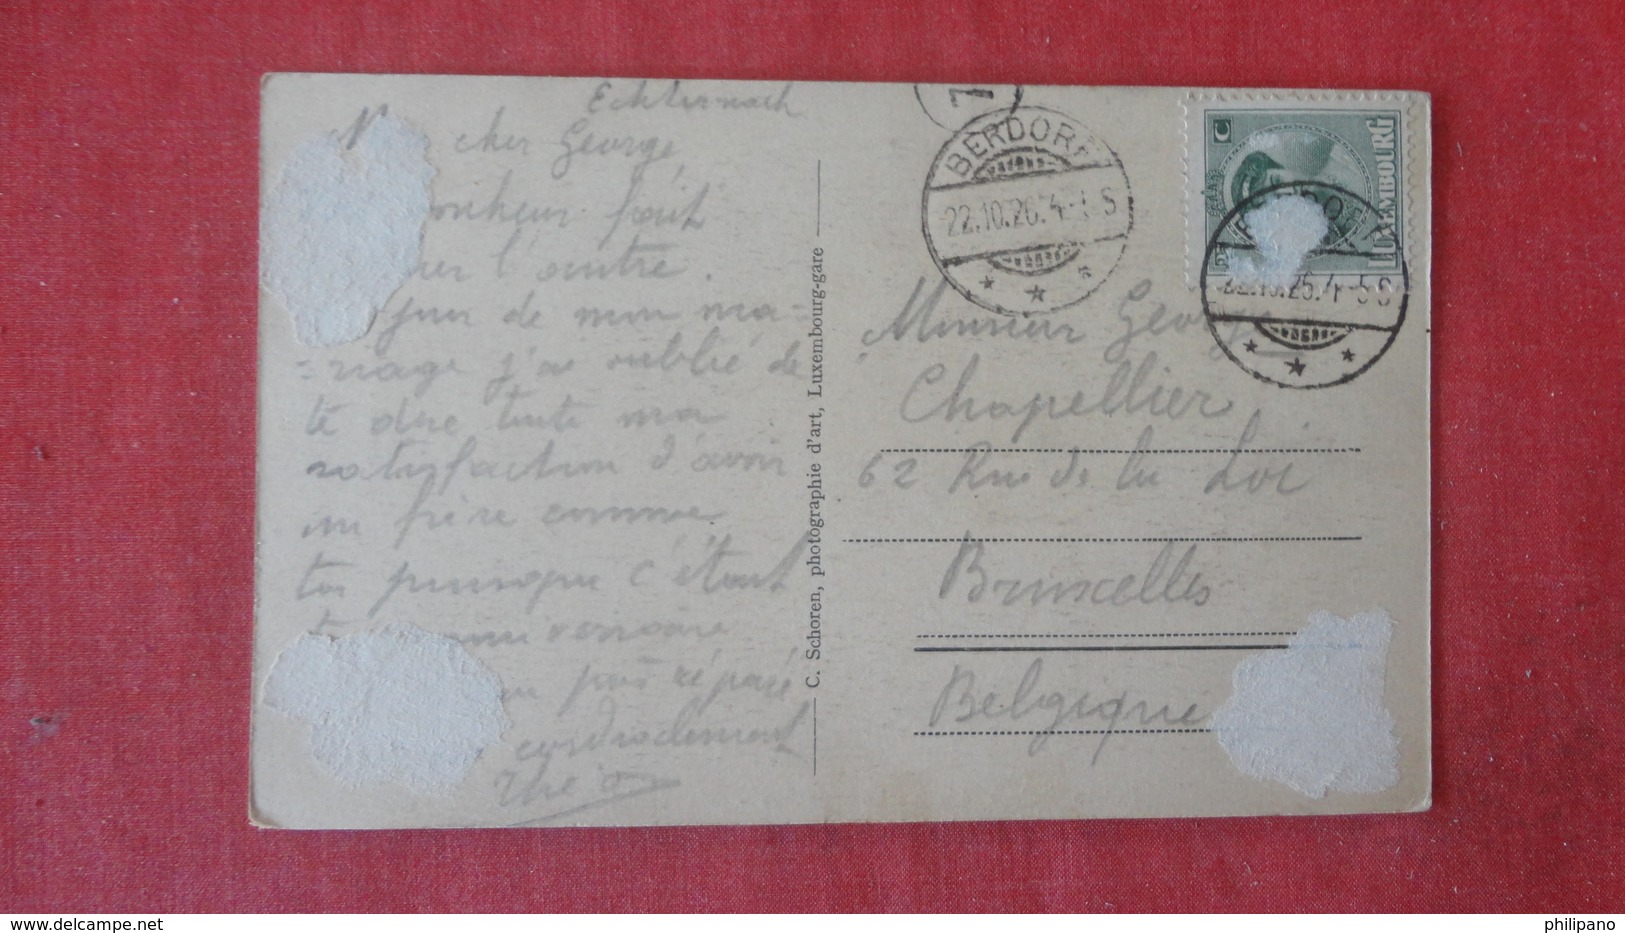 Echternach
cher George
fait
l'autre.
jour de mon ma-
-riage j'ai oublié de
te dire toute ma
satisfaction d'avoir
un frère comme
toi puisque c'était
réparé
cordialement
Théo
C. Schoren, photographie d'art, Luxembourg-gare
BERDORF
22.10.26.4-5 S
LUXEMBOURG
BERDORF
22.10.26.4-5 S
Monsieur George
Chapellier
62 Rue de la Loi
Bruxelles
Belgique
philipano
www.delcampe.net